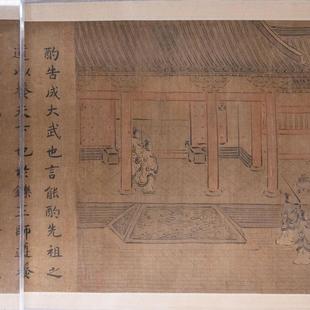 酌告成大武也言能酌先祖之
道以養天下也於鑠王師遵養